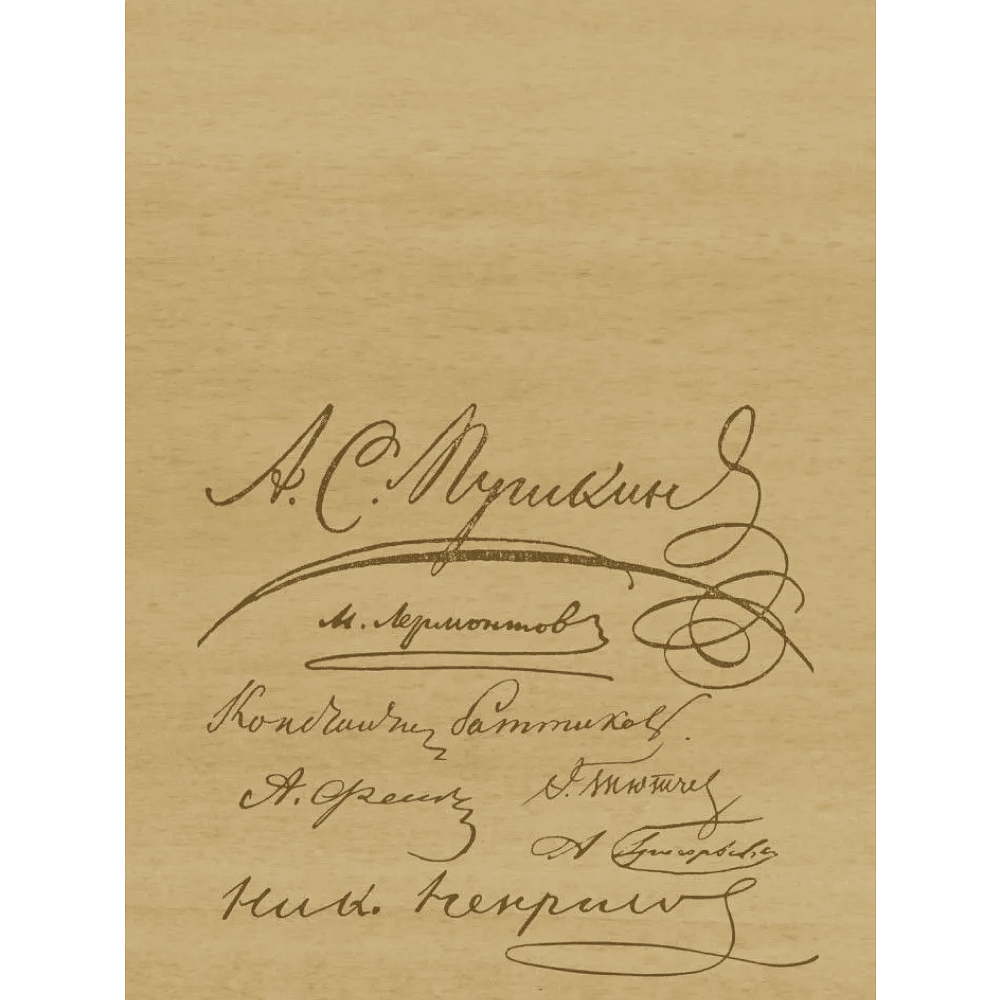 А. С. Пушкинъ
М. Лермонтовъ
Константинъ Батюшковъ.
А. Фетъ
Ѳ. Тютчев
А Григорьевъ
Ник. Некрасов